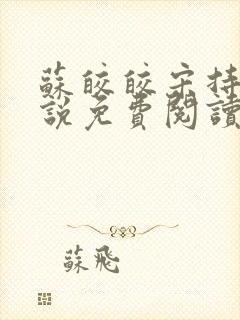 蘇皎皎宋持
說免費閱讀
蘇飛